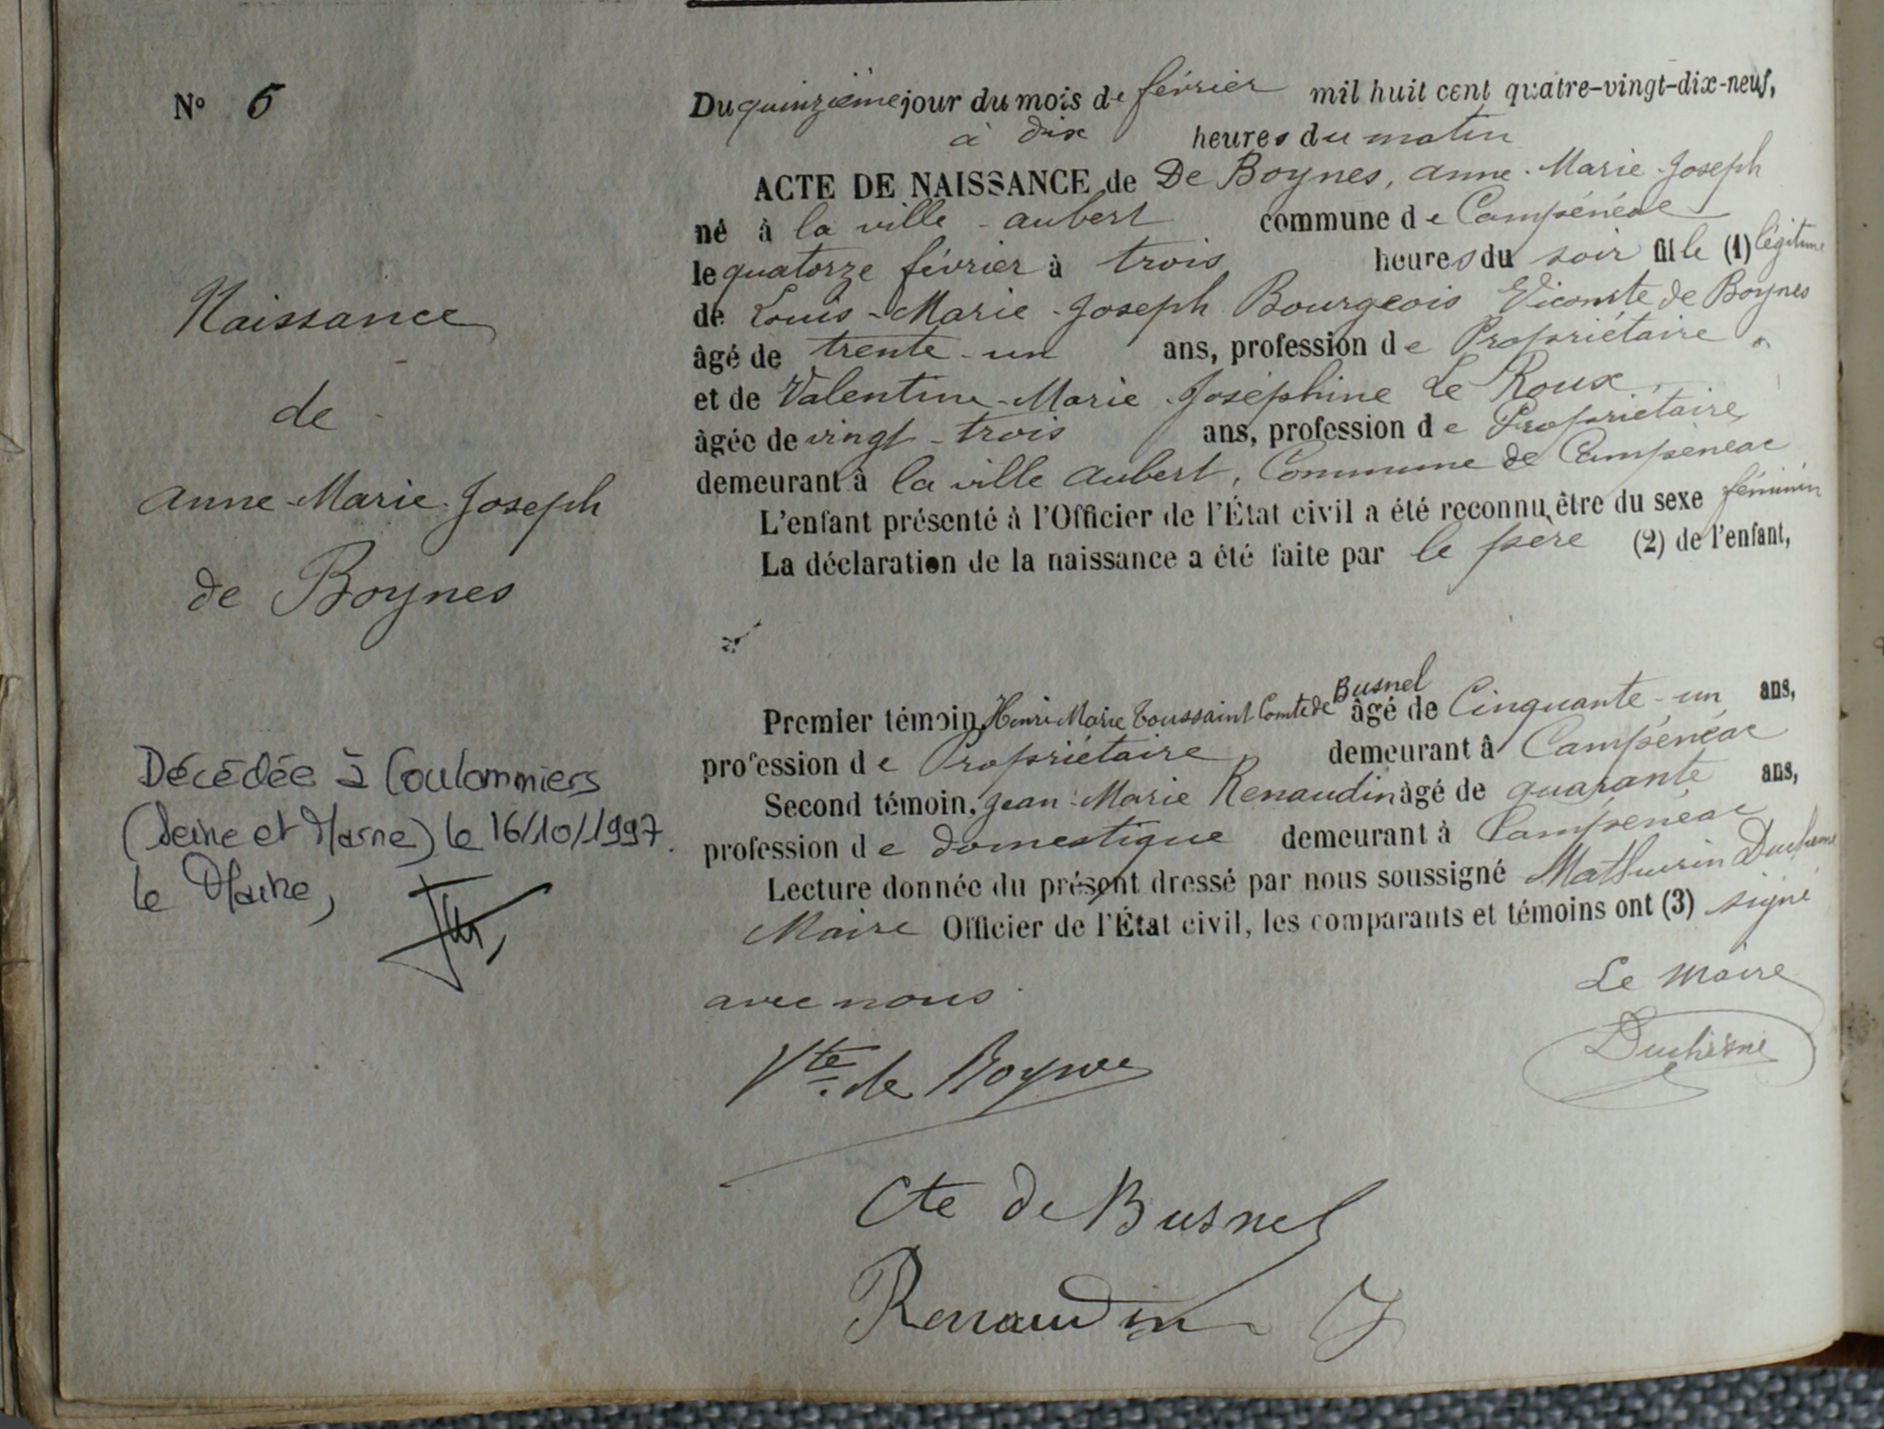 N° 6
Naissance
de
anne-Marie-Joseph
de Boynes
Décédée à Coulommiers
(Seine et Marne) le 16/10/1997.
le Maire,
Du quinzième jour du mois de février mil huit cent quatre-vingt-dix-neuf,
à dix heures du matin
ACTE DE NAISSANCE de De Boynes, anne-Marie-Joseph
né à la ville-aubert commune de Campénéac
le quatorze février à trois heures du soir fille (1) légitime
de Louis-Marie-Joseph Bourgeois Vicomte de Boynes
âgé de trente-un ans, profession de Propriétaire
et de Valentine-Marie-Joséphine Le Roux
âgée de vingt-trois ans, profession de Propriétaire
demeurant à la ville aubert, Commune de Campénéac
L'enfant présenté à l'Officier de l'État civil a été reconnu être du sexe féminin
La déclaration de la naissance a été faite par le père (2) de l'enfant,
Premier témoin, Henri Marie Toussaint Comte de Busnel âgé de Cinquante-un ans,
profession de Propriétaire demeurant à Campénéac
Second témoin, Jean-Marie Renaudin âgé de quarante ans,
profession de domestique demeurant à Campénéac
Lecture donnée du présent dressé par nous soussigné Mathurin Duchesne
Maire Officier de l'État civil, les comparants et témoins ont (3) signé
avec nous
Le Maire
Vte de Boynes
Duchesne
Cte de Busnel
Renaudin J